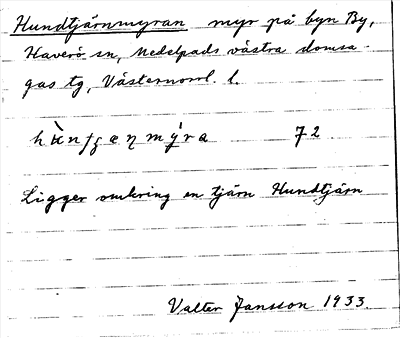 Hundtjärnmyran myr på byn By,
Haverö sn, Medelpads västra domsa-
gas tg, Västernorrl. l.
72
Ligger omkring en tjärn Hundtjärn
Valter Jansson 1933.